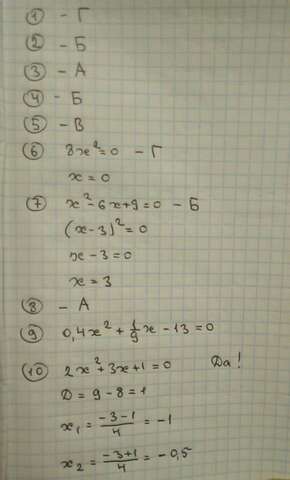 1 - Г
2 - Б
3 - А
4 - Б
5 - В
6 8x² = 0 - Г
x = 0
7 x² - 6x + 9 = 0 - Б
(x - 3)² = 0
x - 3 = 0
x = 3
8 - А
9 0,4x² + 1/9 x - 13 = 0
10 2x² + 3x + 1 = 0 Да!
D = 9 - 8 = 1
x₁ = (-3-1)/4 = -1
x₂ = (-3+1)/4 = -0,5